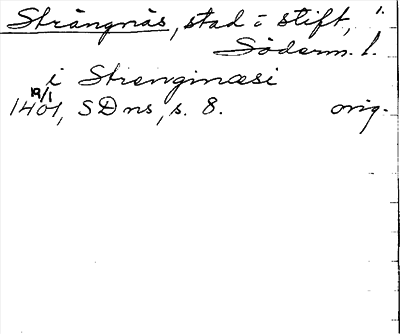 Strängnäs, stad o stift, i.
Söderm. l.
i Strenginæsi
19/1
1401, SD ns, s. 8. orig.